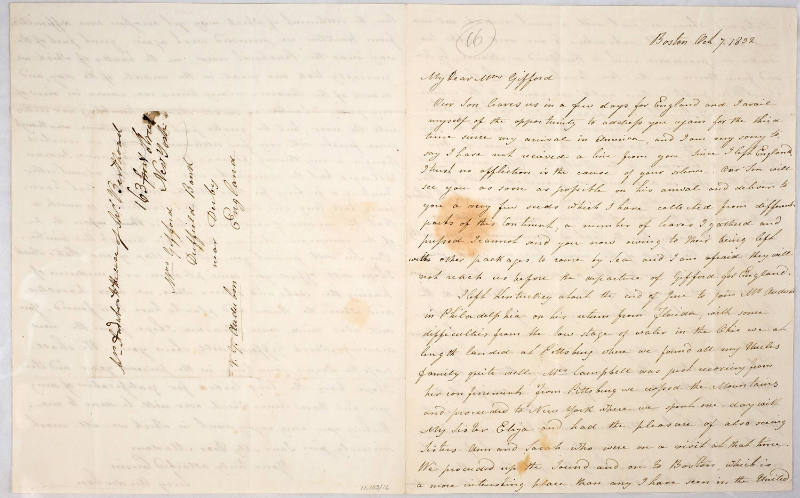 66
Boston Oct 7. 1832
My Dear Mrs Gifford
Our Son leaves us in a few days for England and I avail
myself of the opportunity to address you again for the third
time since my arrival in America, and I am very sorry to
say I have not received a line from you since I left England
I trust no affliction is the cause of your silence. Our Son will
see you as soon as possible on his arrival and deliver to
you a very few seeds which I have collected from different
parts of this Continent, a number of leaves I gathered and
pressed I cannot send you now owing to their being left
with other packages to come by Sea and I am afraid they will
not reach us before the departure of Gifford for England.
I left Kentuckey about the end of June to join Mr Audubon
in Philadelphia on his return from Florida, with some
difficulties from the low stage of water in the Ohio we at
length landed at Pittsburg where we found all my Uncles
family quite well Mrs Campbell was just recovering from
her confinement. From Pittsburg we crossed the Mountains
and proceeded to New York there we spent one day with
My Sister Eliza and had the pleasure of also seeing
Sisters Ann and Sarah who were on a visit at that time.
We proceeded up the Sound and on to Boston, which is
a more interesting place than any I have seen in the United
163
New York
Mrs Gifford
Duffield Bank
near Derby
England
11.103/16